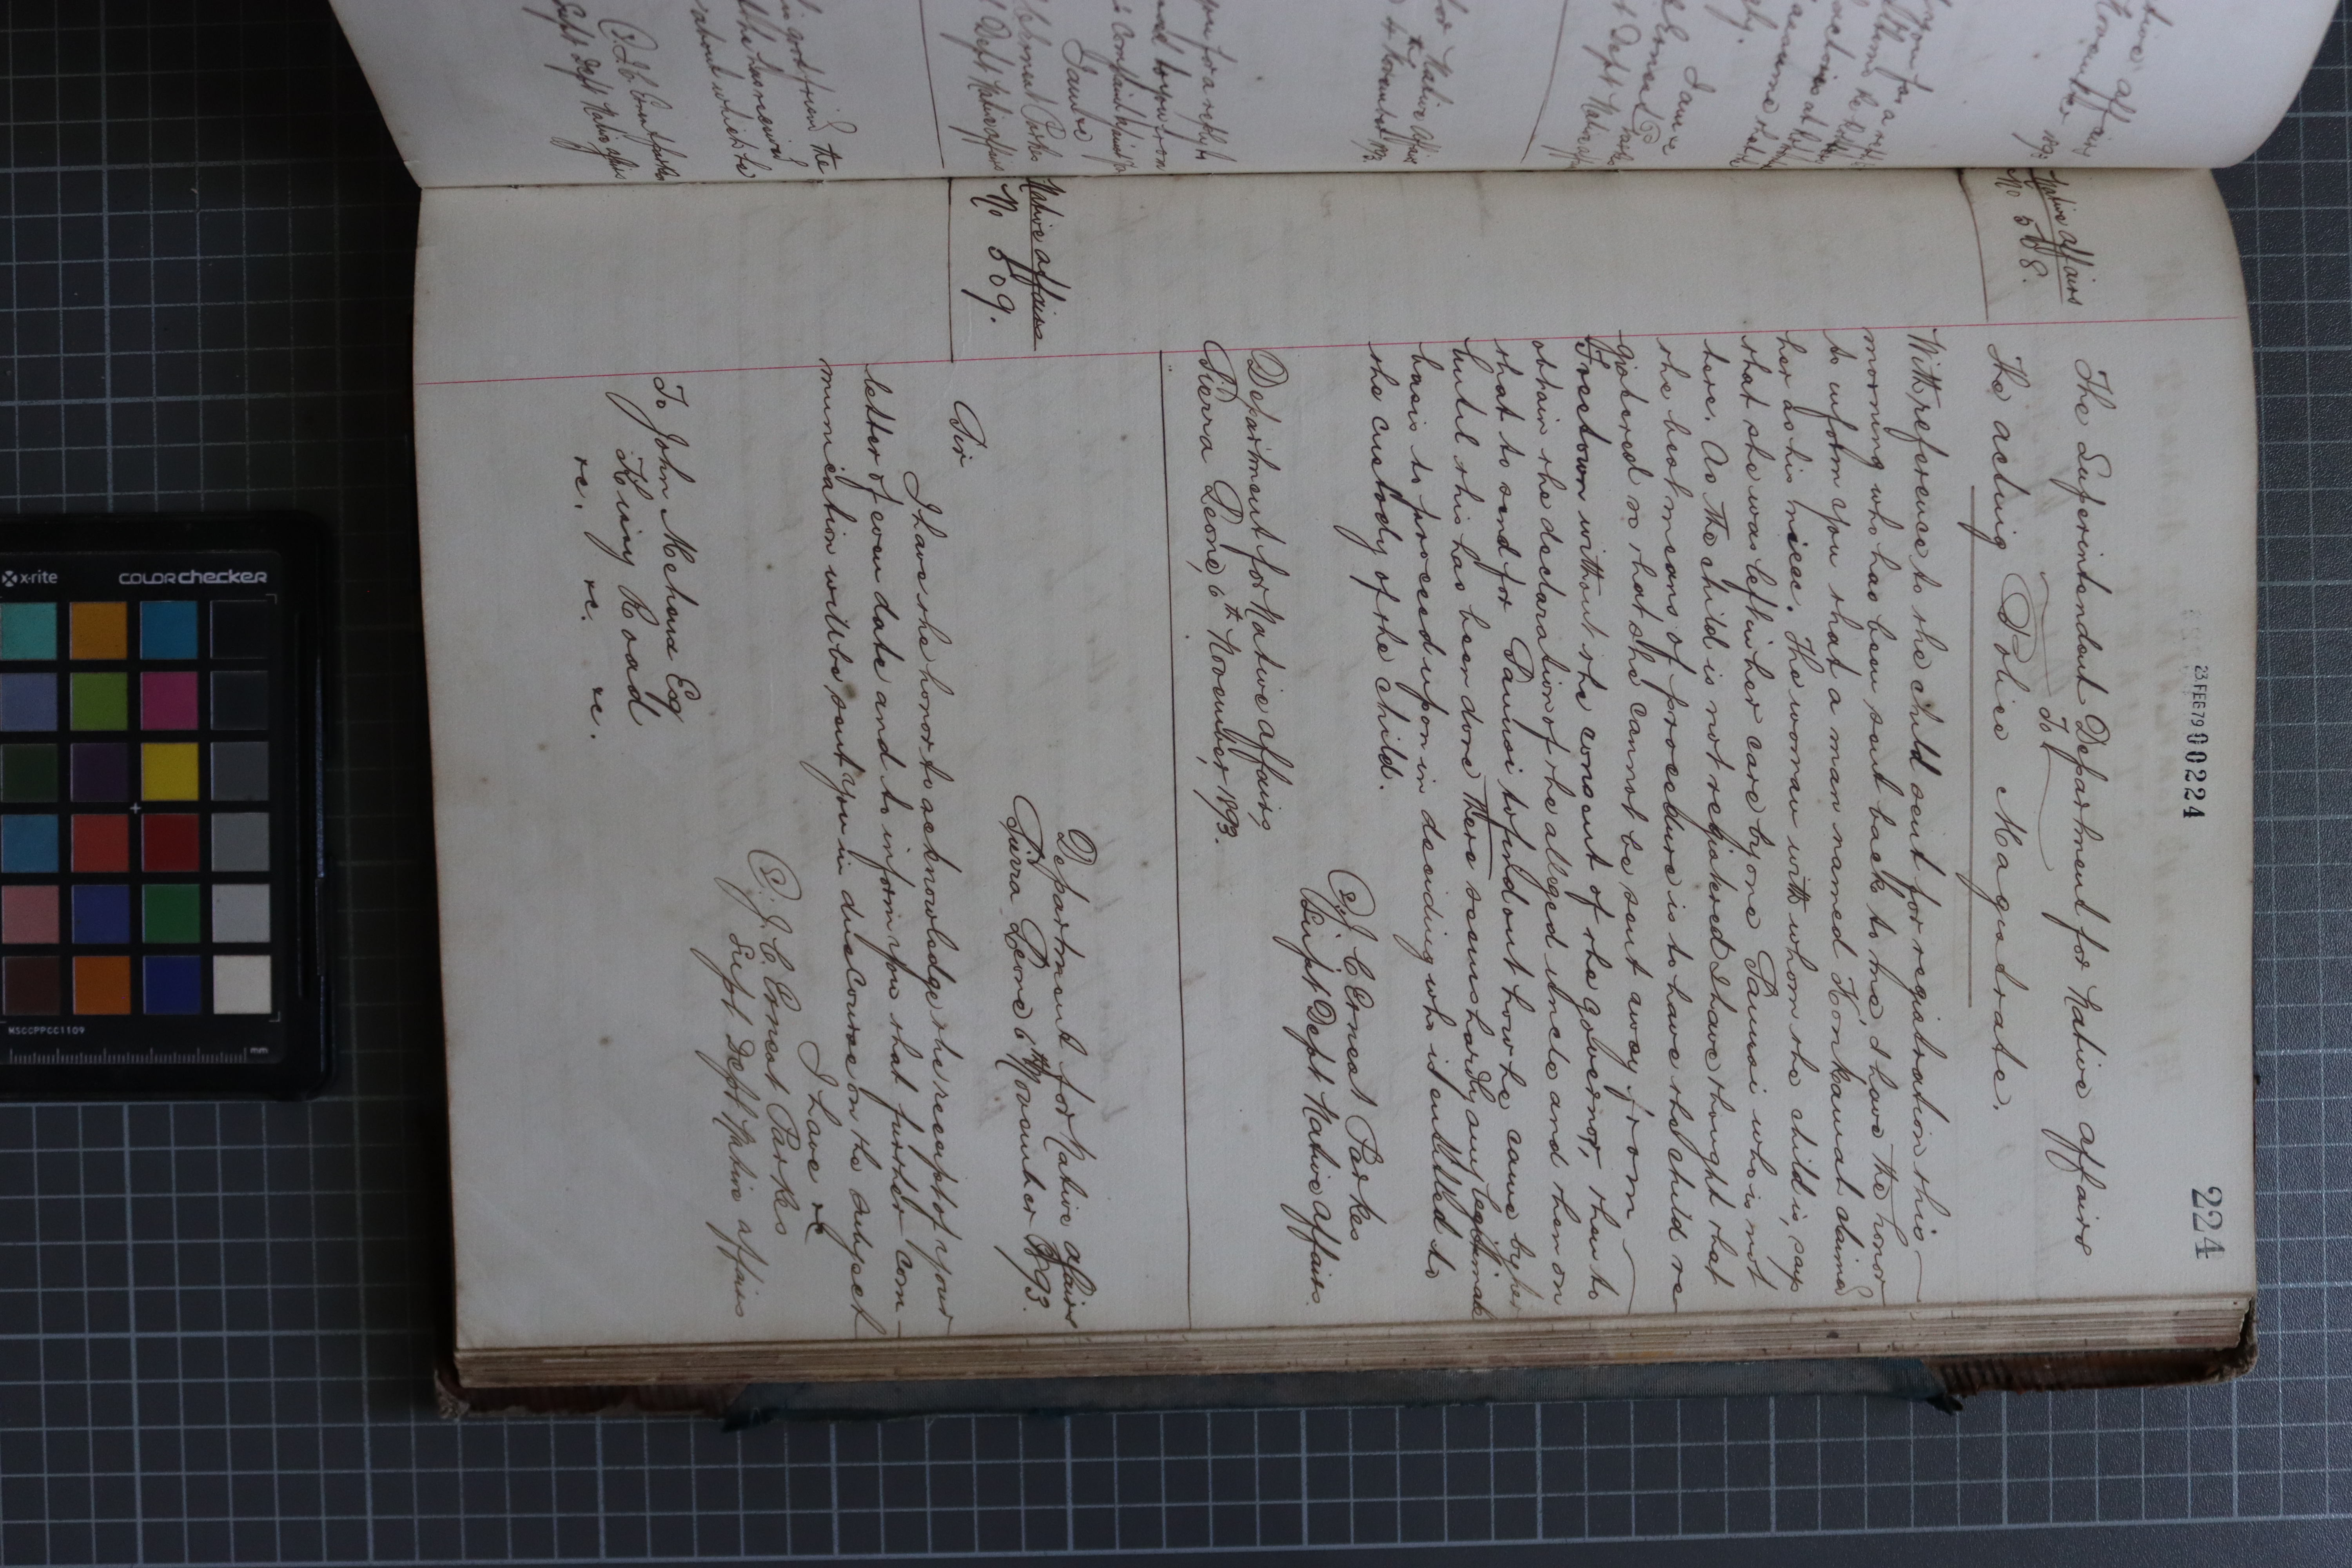 23 FEB 79 00224
224
Native affairs
No 508.
The Superintendent Department for Native affairs
To
The acting Police Magistrate.
With reference to the child sent for registration this
morning who has been sent back to me, I have the honor
to inform you that a man named Konkamah claims
her as his niece. The woman with whom the child is, says
that she was left in her care by one who is not
here. As the child is not registered I have thought that
the best means of procedure is to have the child re-
gistered so that she cannot be sent away from
Freetown without the consent of the governor, than to
obtain the declaration of the alleged uncle and then on
that to send for to find out how he came by her
until this has been done there seems hardly any legitimate
basis to proceed upon in deciding who is entitled to
the custody of the child.
(S) J C Ernest Parkes
Supt Dept Native affairs.
Department for Native affairs,
Sierra Leone, 6th November, 1893.
Native affairs
No 509.
Department for Native affairs
Sierra Leone 6th November 1893.
Sir
I have the honor to acknowledge the receipt of your
letter of even date and to inform you that further com-
munication will be sent you in due course on the subject
I have &c
(S). J. C Ernest Parkes
Supt Dept Native affairs
To John Esq
Kissy Road
&c. &c. &c.
x-rite colorchecker
MSCCPPCC1109
mm